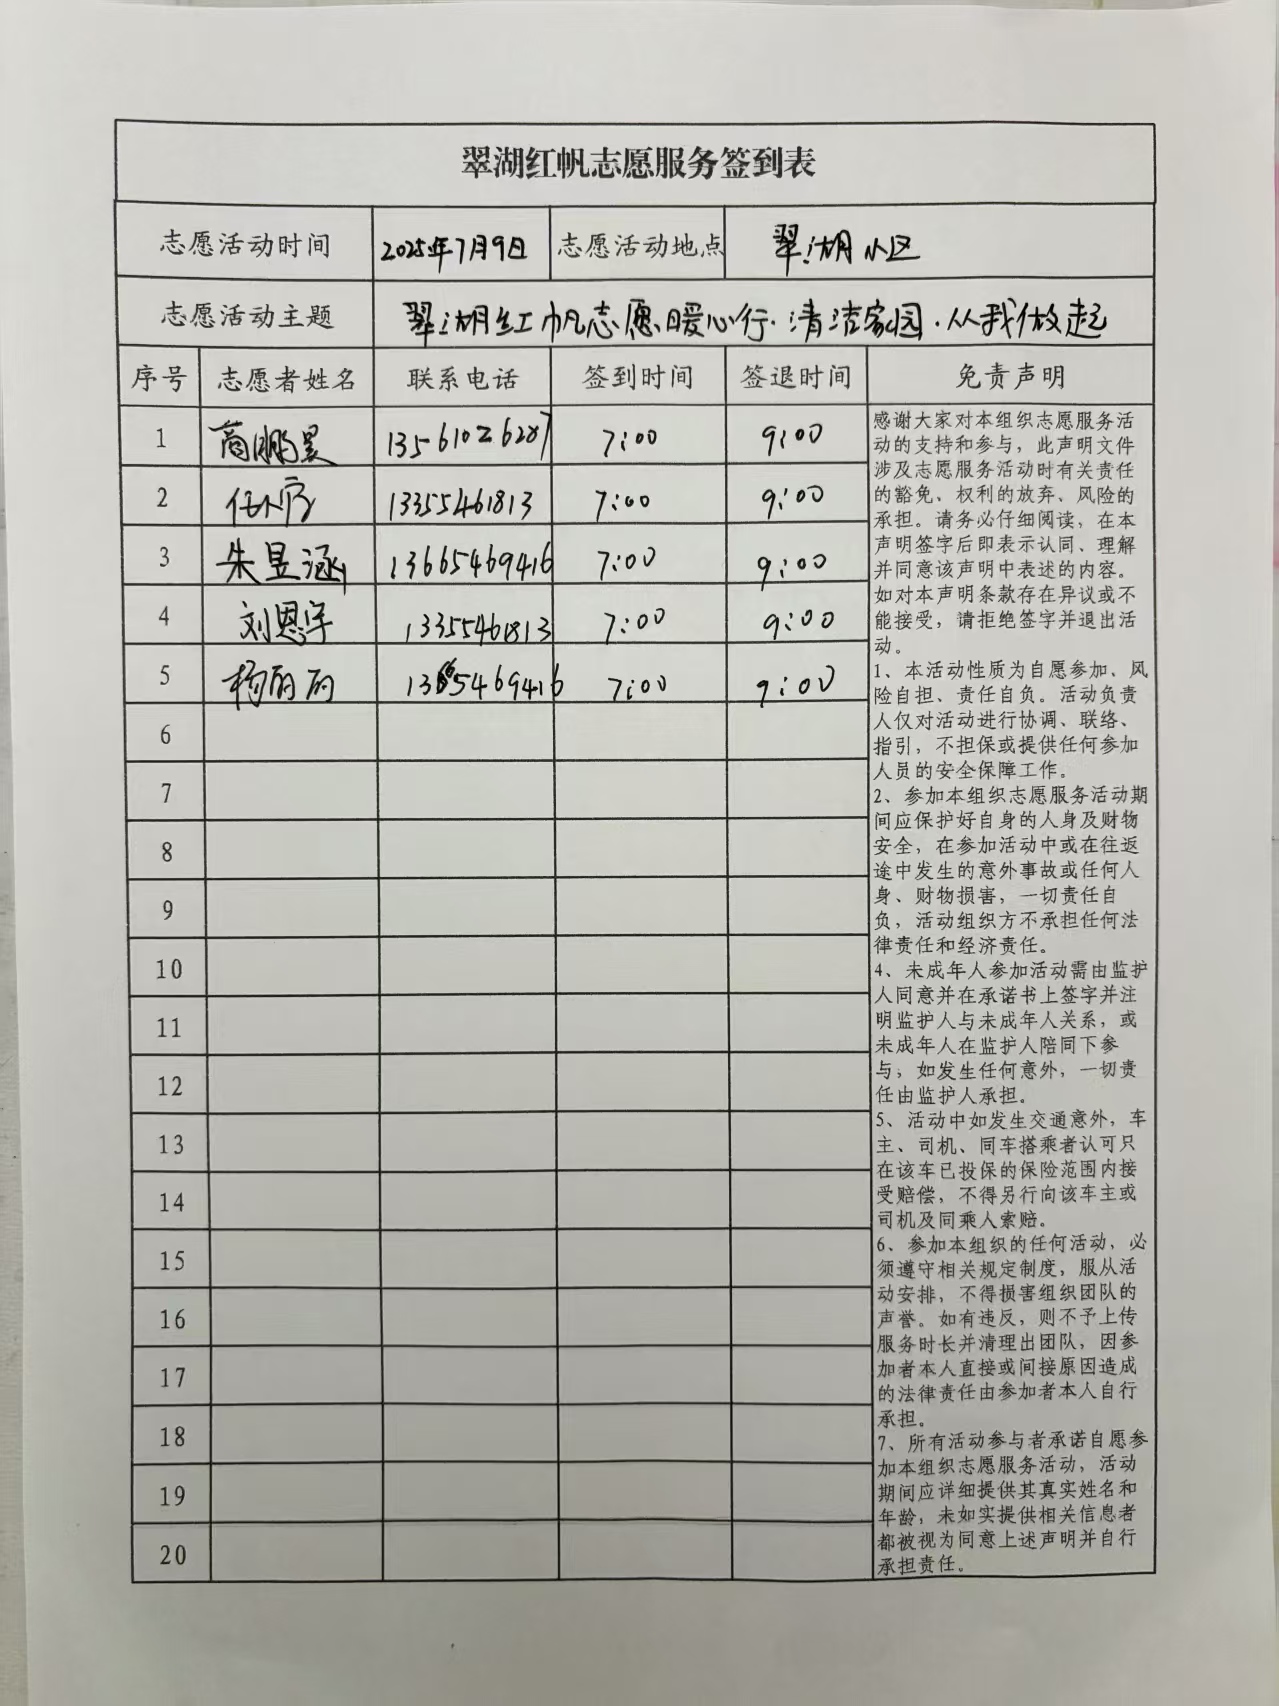 翠湖红帆志愿服务签到表
志愿活动时间 2025年7月9日 志愿活动地点 翠湖小区
志愿活动主题 翠湖红帆志愿暖心行·清洁家园·从我做起
序号 志愿者姓名 联系电话 签到时间 签退时间 免责声明
1 商鹏昊 13561026287 7:00 9:00
2 13355461813 7:00 9:00
3 朱昱涵 13665469416 7:00 9:00
4 刘恩宇 13355461813 7:00 9:00
5 杨丽丽 13665469416 7:00 9:00
6
7
8
9
10
11
12
13
14
15
16
17
18
19
20
感谢大家对本组织志愿服务活
动的支持和参与，此声明文件
涉及志愿服务活动时有关责任
的豁免、权利的放弃、风险的
承担。请务必仔细阅读，在本
声明签字后即表示认同、理解
并同意该声明中表述的内容。
如对本声明条款存在异议或不
能接受，请拒绝签字并退出活
动。
1、本活动性质为自愿参加、风
险自担、责任自负。活动负责
人仅对活动进行协调、联络、
指引，不担保或提供任何参加
人员的安全保障工作。
2、参加本组织志愿服务活动期
间应保护好自身的人身及财物
安全，在参加活动中或在往返
途中发生的意外事故或任何人
身、财物损害，一切责任自
负，活动组织方不承担任何法
律责任和经济责任。
4、未成年人参加活动需由监护
人同意并在承诺书上签字并注
明监护人与未成年人关系，或
未成年人在监护人陪同下参
与；如发生任何意外，一切责
任由监护人承担。
5、活动中如发生交通意外，车
主、司机、同车搭乘者认可只
在该车已投保的保险范围内接
受赔偿，不得另行向该车主或
司机及同乘人索赔。
6、参加本组织的任何活动，必
须遵守相关规定制度，服从活
动安排，不得损害组织团队的
声誉。如有违反，则不予上传
服务时长并清理出团队，因参
加者本人直接或间接原因造成
的法律责任由参加者本人自行
承担。
7、所有活动参与者承诺自愿参
加本组织志愿服务活动，活动
期间应详细提供其真实姓名和
年龄，未如实提供相关信息者
都被视为同意上述声明并自行
承担责任。